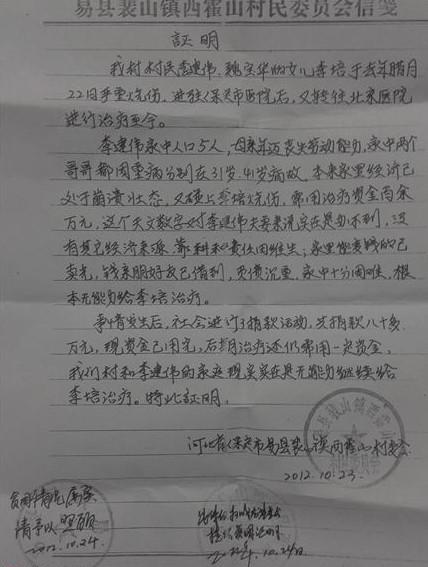 易县裴山镇西霍山村民委员会信笺
证明
我村村民李建伟、魏宝华的女儿李培于去年腊月
22日严重烧伤,进驻保定市医院后,又转往北京医院
进行治疗至今。
李建伟家中人口5人,母亲年迈丧失劳动能力,家中两个
哥哥都因重病分别在31岁、41岁病故,本来家里经济已
处于崩溃状态,又碰上李培烧伤,需用治疗资金百余
万元,这个天文数字对李建伟夫妻来说实在是办不到,没
有其它经济来源,靠种和责任田维生;家里能卖钱的已
卖光,钱亲朋好友已借到,负债沉重,家中十分困难,根
本无能力给李培治疗。
事情发生后,社会进行了捐款活动,共捐款八十多
万元,现资金已用完,后期治疗还仍需用一定资金,
我们村和李建伟的家庭现实实在是无能力继续给
李培治疗。特此证明。
河北省保定市易县裴山镇西霍山村委会
2012.10.23.
情况属实
请予以照顾
2012.10.24.
2012年.10.24日